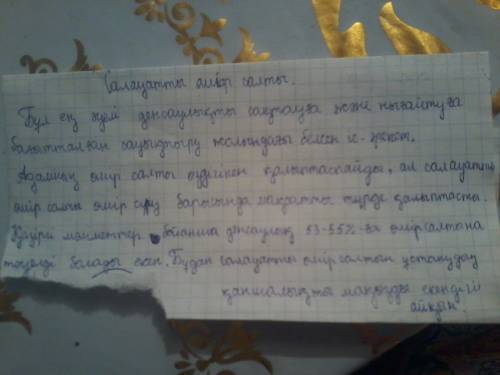 Салауатты өмір салты.
Бұл ең әуелі денсаулықты сақтауға және нығайтуға
бағытталған сауықтыру жолындағы белсен іс-әрекет.
Адамның өмір салты өздігінен қалыптаспайды, ал салауатты
өмір салты өмір сүру барысында мақсатты түрде қалыптасты.
Қазіргі мәліметтер бойынша денсаулық 53-55%-ға өмір салтына
тәуелді болады екен. Бұдан салауатты өмір салтын ұстанудың
қаншалықты маңызды екендігі
айқын.